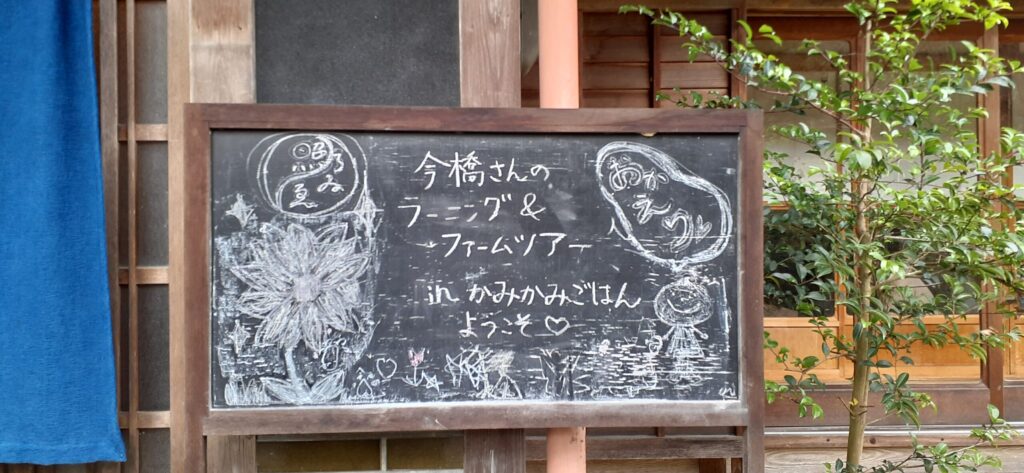 今橋さんの
ラーニング&
ファームツアー
in かみかみごはん
ようこそ♡